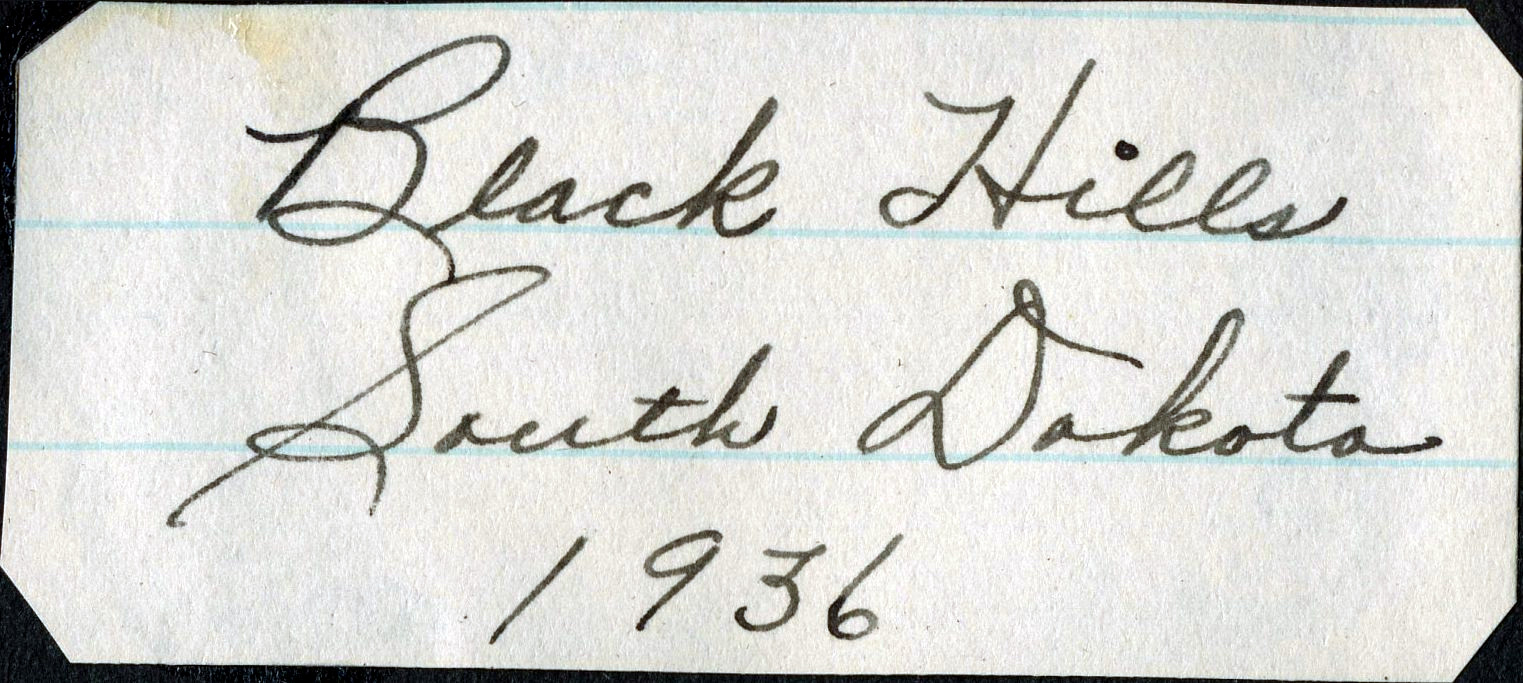 Black Hills
South Dakota
1936